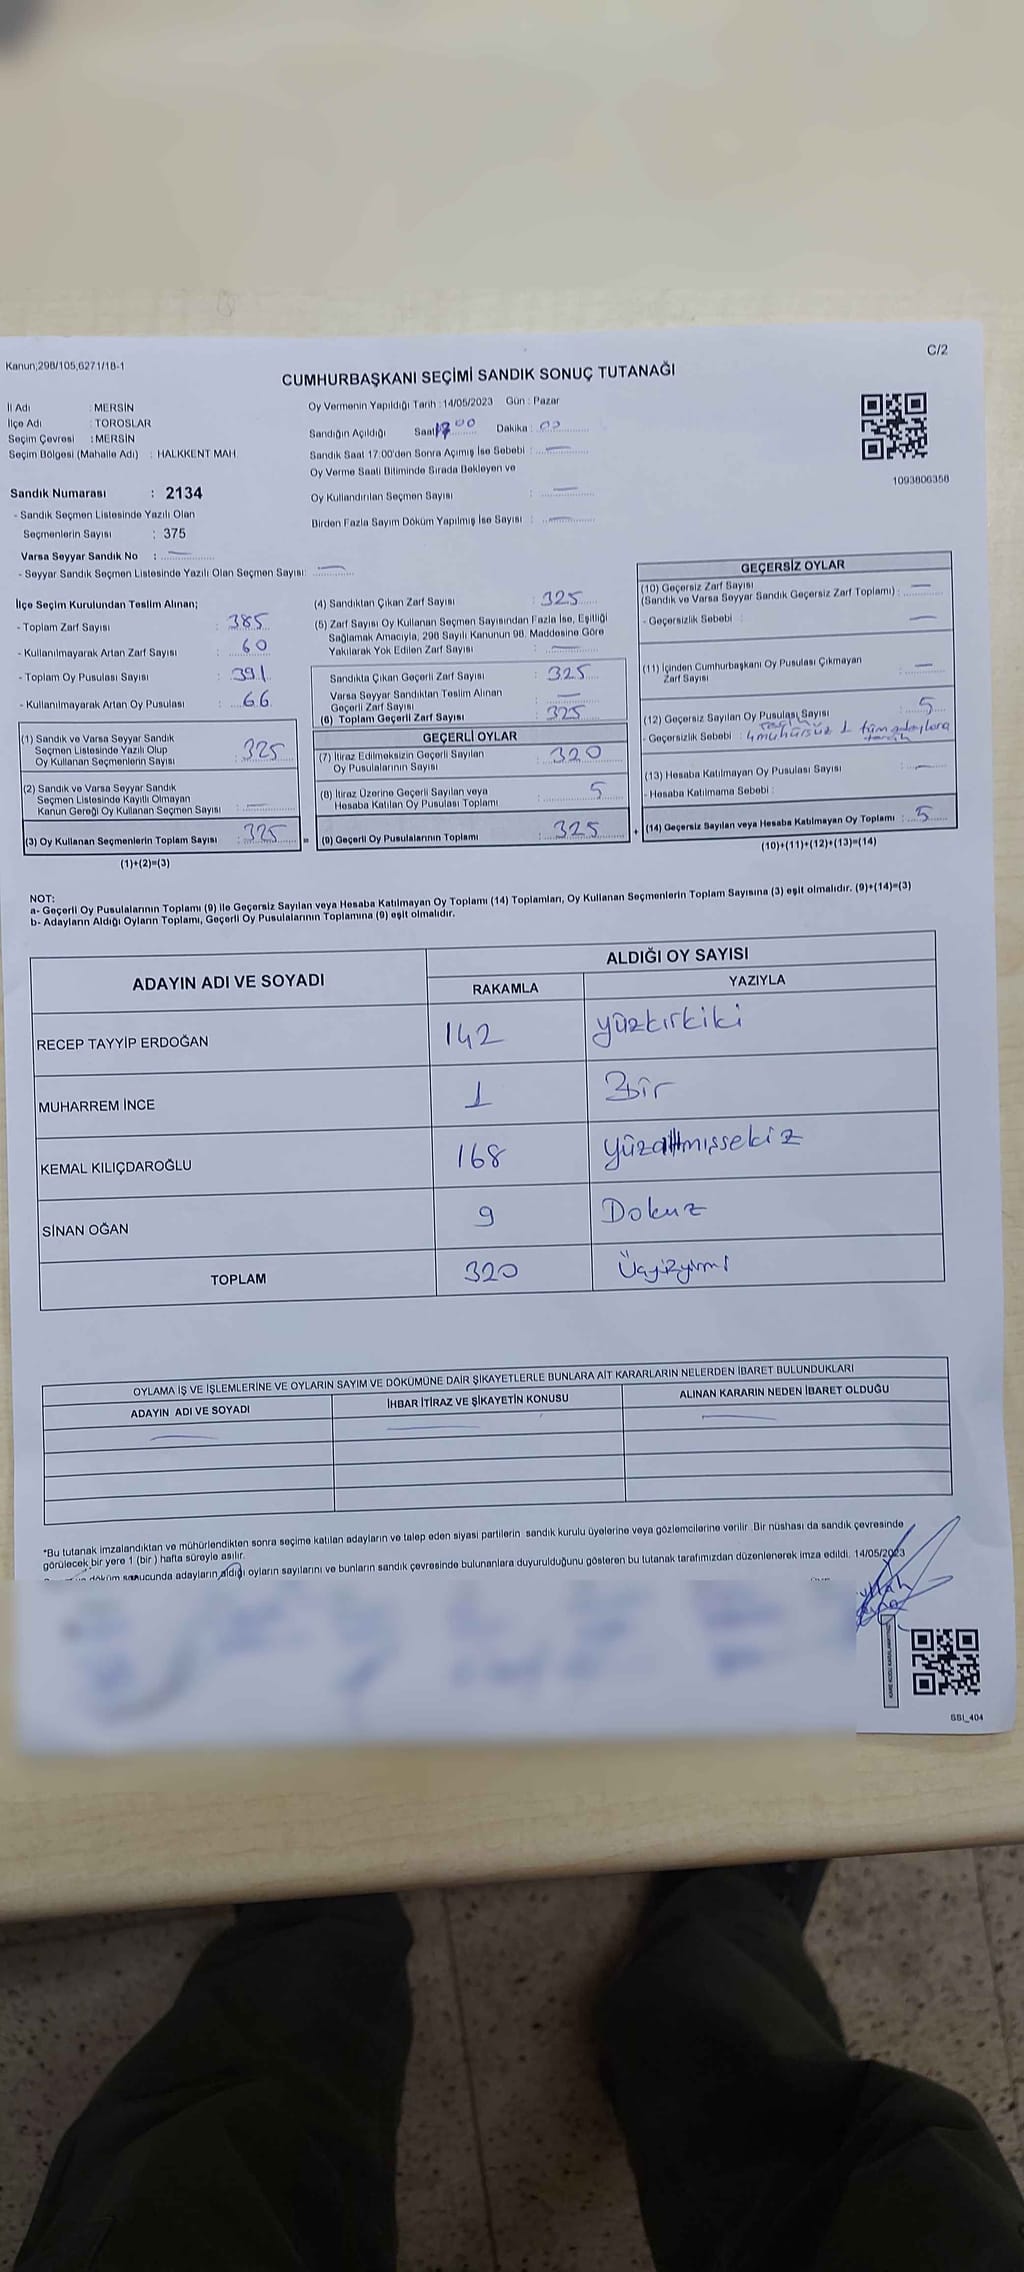 Kanun;298/105,6271/18-1
C/2
CUMHURBAŞKANI SEÇİMİ SANDIK SONUÇ TUTANAĞI
İl Adı : MERSİN
İlçe Adı : TOROSLAR
Seçim Çevresi : MERSİN
Seçim Bölgesi (Mahalle Adı) : HALKKENT MAH.
Oy Vermenin Yapıldığı Tarih : 14/05/2023 Gün : Pazar
Sandığın Açıldığı Saat 17 00 Dakika : 00
Sandık Saat 17:00'den Sonra Açımış İse Sebebi :
Oy Verme Saati Bitiminde Sırada Bekleyen ve
Oy Kullandırılan Seçmen Sayısı :
Birden Fazla Sayım Döküm Yapılmış İse Sayısı :
1093806358
Sandık Numarası : 2134
- Sandık Seçmen Listesinde Yazılı Olan
Seçmenlerin Sayısı : 375
Varsa Seyyar Sandık No :
- Seyyar Sandık Seçmen Listesinde Yazılı Olan Seçmen Sayısı:
İlçe Seçim Kurulundan Teslim Alınan;
- Toplam Zarf Sayısı : 385
- Kullanılmayarak Artan Zarf Sayısı : 60
- Toplam Oy Pusulası Sayısı : 391
- Kullanılmayarak Artan Oy Pusulası : 66
(1) Sandık ve Varsa Seyyar Sandık
Seçmen Listesinde Yazılı Olup
Oy Kullanan Seçmenlerin Sayısı : 325
(2) Sandık ve Varsa Seyyar Sandık
Seçmen Listesinde Kayıtlı Olmayan
Kanun Gereği Oy Kullanan Seçmen Sayısı :
(3) Oy Kullanan Seçmenlerin Toplam Sayısı : 325
(1)+(2)=(3)
(4) Sandıktan Çıkan Zarf Sayısı : 325
(5) Zarf Sayısı Oy Kullanan Seçmen Sayısından Fazla İse, Eşitliği
Sağlamak Amacıyla, 298 Sayılı Kanunun 98. Maddesine Göre
Yakılarak Yok Edilen Zarf Sayısı :
Sandıkta Çıkan Geçerli Zarf Sayısı : 325
Varsa Seyyar Sandıktan Teslim Alınan
Geçerli Zarf Sayısı :
(6) Toplam Geçerli Zarf Sayısı : 325
GEÇERLİ OYLAR
(7) İtiraz Edilmeksizin Geçerli Sayılan
Oy Pusulalarının Sayısı : 320
(8) İtiraz Üzerine Geçerli Sayılan veya
Hesaba Katılan Oy Pusulası Toplamı : 5
= (9) Geçerli Oy Pusulalarının Toplamı : 325 +
GEÇERSİZ OYLAR
(10) Geçersiz Zarf Sayısı
(Sandık ve Varsa Seyyar Sandık Geçersiz Zarf Toplamı) :
- Geçersizlik Sebebi :
(11) İçinden Cumhurbaşkanı Oy Pusulası Çıkmayan
Zarf Sayısı :
(12) Geçersiz Sayılan Oy Pusulası Sayısı : 5
- Geçersizlik Sebebi : 4 mühürsüz 1 tüm adaylara
(13) Hesaba Katılmayan Oy Pusulası Sayısı :
- Hesaba Katılmama Sebebi :
(14) Geçersiz Sayılan veya Hesaba Katılmayan Oy Toplamı : 5
(10)+(11)+(12)+(13)=(14)
NOT:
a- Geçerli Oy Pusulalarının Toplamı (9) ile Geçersiz Sayılan veya Hesaba Katılmayan Oy Toplamı (14) Toplamları, Oy Kullanan Seçmenlerin Toplam Sayısına (3) eşit olmalıdır. (9)+(14)=(3)
b- Adayların Aldığı Oyların Toplamı, Geçerli Oy Pusulalarının Toplamına (9) eşit olmalıdır.
ADAYIN ADI VE SOYADI ALDIĞI OY SAYISI
RAKAMLA YAZIYLA
RECEP TAYYİP ERDOĞAN 142 yüzkırkiki
MUHARREM İNCE 1 Bir
KEMAL KILIÇDAROĞLU 168 yüzaltmışsekiz
SİNAN OĞAN 9 Dokuz
TOPLAM 320 Üçyüzyirmi
OYLAMA İŞ VE İŞLEMLERİNE VE OYLARIN SAYIM VE DÖKÜMÜNE DAİR ŞİKAYETLERLE BUNLARA AİT KARARLARIN NELERDEN İBARET BULUNDUKLARI
ADAYIN ADI VE SOYADI İHBAR İTİRAZ VE ŞİKAYETİN KONUSU ALINAN KARARIN NEDEN İBARET OLDUĞU
*Bu tutanak imzalandıktan ve mühürlendikten sonra seçime katılan adayların ve talep eden siyasi partilerin sandık kurulu üyelerine veya gözlemcilerine verilir. Bir nüshası da sandık çevresinde
görülecek bir yere 1 (bir ) hafta süreyle asılır.
döküm sonucunda adayların aldığı oyların sayılarını ve bunların sandık çevresinde bulunanlara duyurulduğunu gösteren bu tutanak tarafımızdan düzenlenerek imza edildi. 14/05/2023
SSI_404